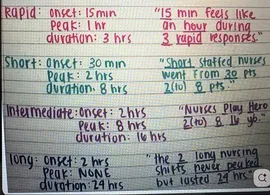 Rapid: onset: 15min
Peak: 1 hr
duration: 3 hrs
"15 min feels like
an hour during
3 rapid responses."
Short: onset: 30 min
Peak: 2 hrs
duration: 8 hrs
"Short staffed nurses
went from 30 pts
2(to) 8 pts."
Intermediate: onset: 2 hrs
Peak: 8 hrs
duration: 16 hrs
"Nurses Play Hero
2(to) 8 16 yo."
long: onset: 2 hrs
Peak: NONE
duration: 24 hrs
"the 2 long nursing
shifts never peaked
but lasted 24 hrs."